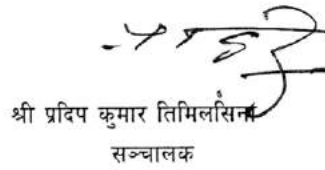 श्री प्रदिप कुमार तिमिलसिना
सञ्चालक